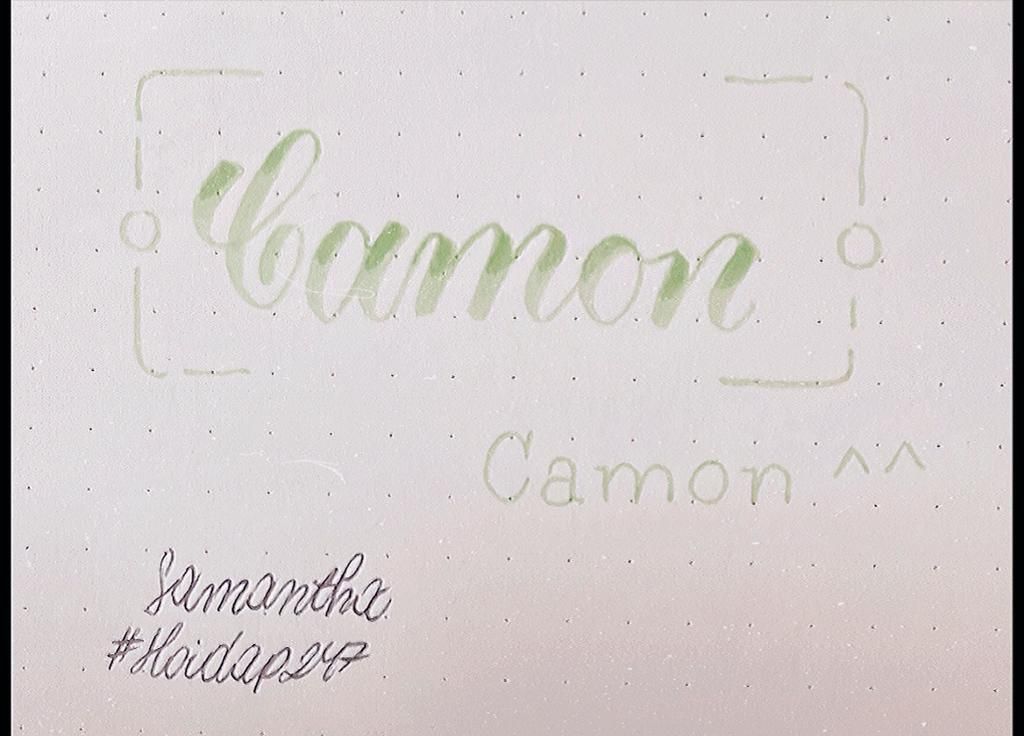 Camon
Camon ^^
Samantha
#Hoidap247